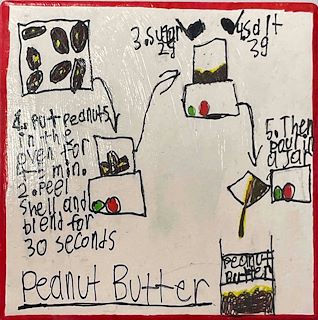 1. Put peanuts
in the
oven for
4-5 min.
2. Peel
shell and
blend for
30 seconds
3. sugar
2g
4 salt
3g
5. Then
pour in
a jar
peanut
Butter
Peanut Butter